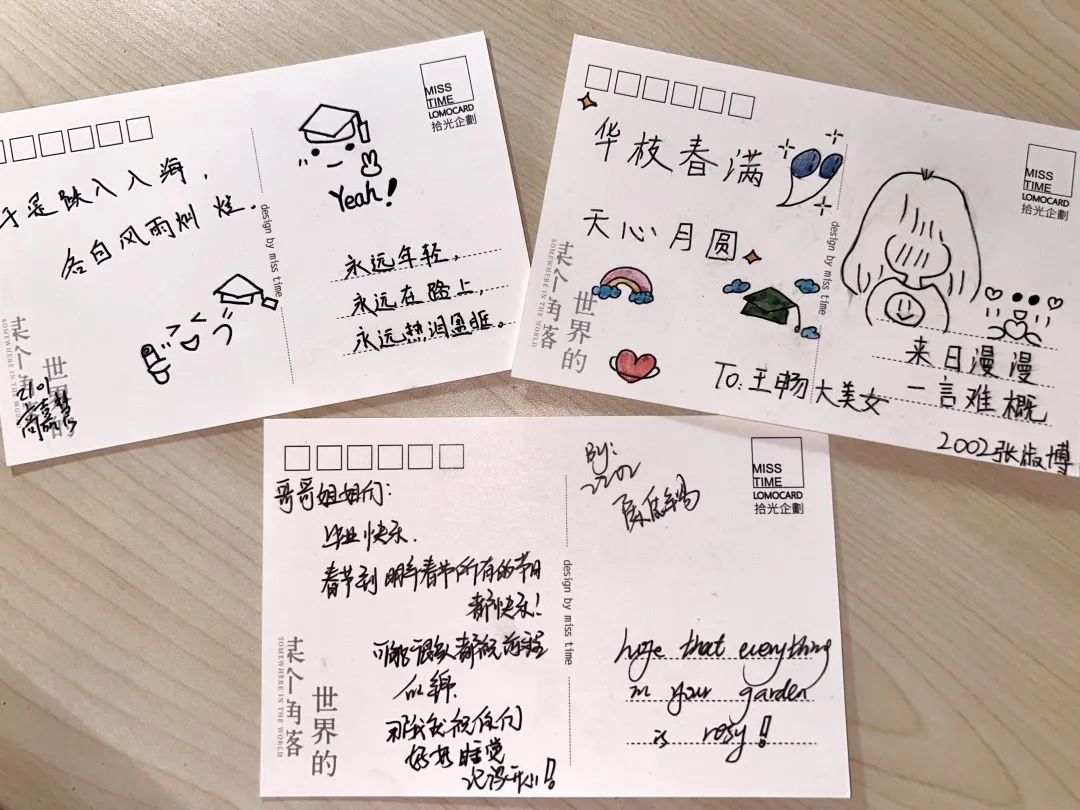 于是跌入人海，
各自风雨灿烂。
Yeah!
永远年轻，
永远在路上，
永远热泪盈眶。
MISS
TIME
LOMOCARD
拾光企劃
design by miss time
某个角落
SOMEWHERE IN THE WORLD
世界的
2101
华枝春满
天心月圆
To:王畅大美女
来日漫漫
一言难概
2002张淑博
MISS
TIME
LOMOCARD
拾光企劃
design by miss time
某个角落
SOMEWHERE IN THE WORLD
世界的
哥哥姐姐们：
毕业快乐.
春节到明年春节所有的节日
都快乐！
可能很多人都祝前程
似锦.
那我就祝你们
好好睡觉
记得开心！
By:
2202
hope that everything
in your garden
is rosy!
MISS
TIME
LOMOCARD
拾光企劃
design by miss time
某个角落
SOMEWHERE IN THE WORLD
世界的